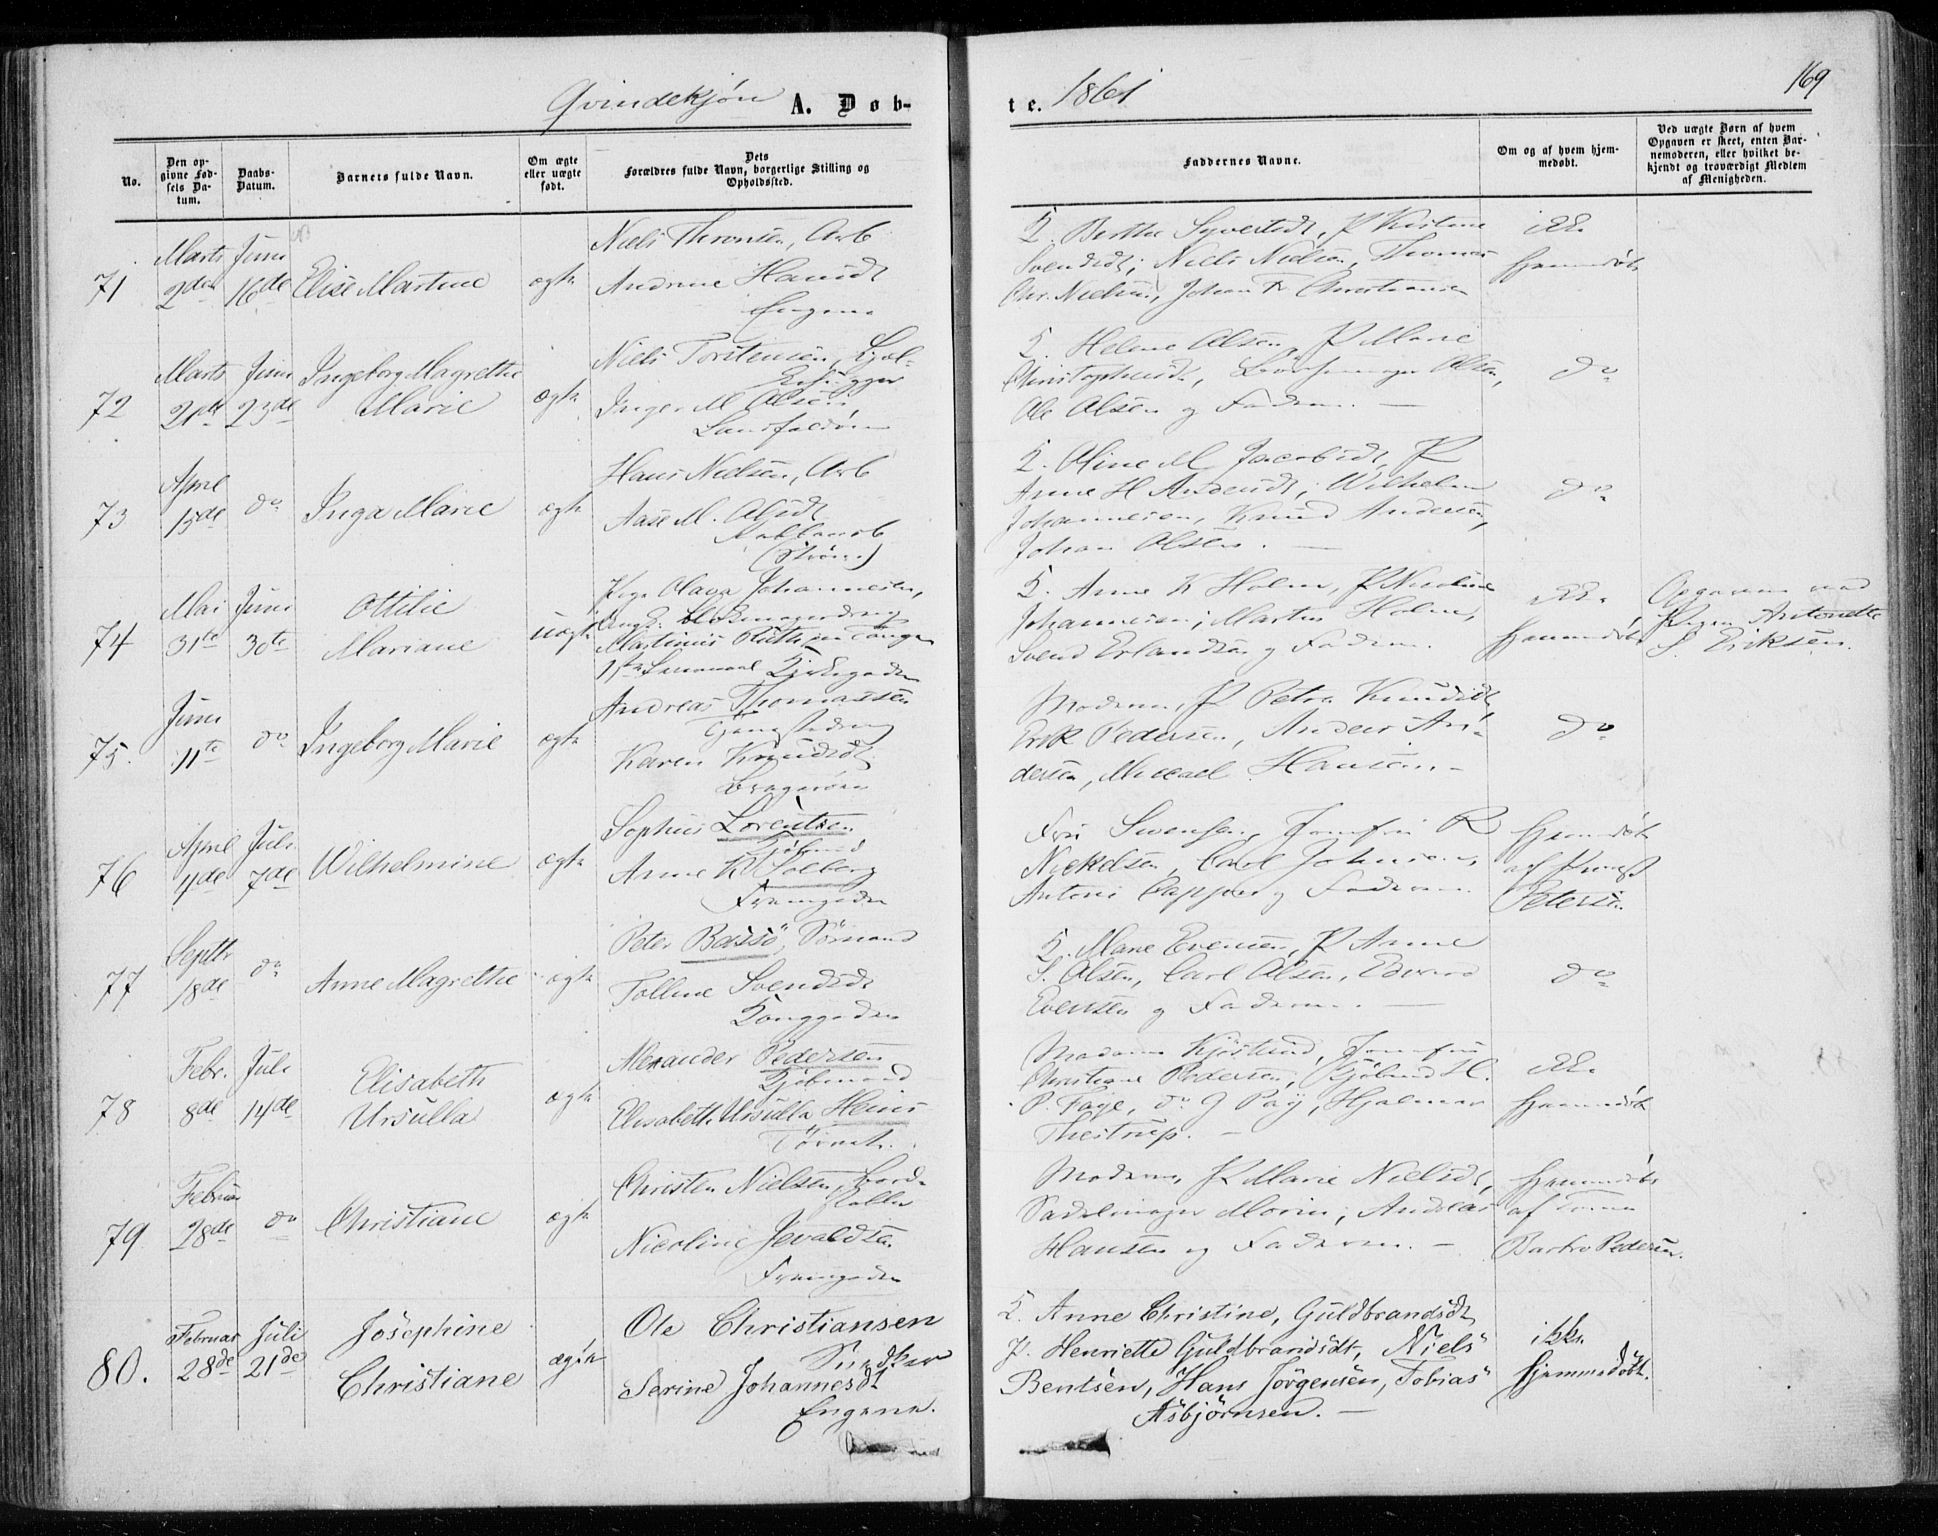 Qvindekjøn A. Døb-
te. 1861
169
No.
Den op-
givne Fød-
sels Da-
tum.
Daabs-
Datum.
Barnets fulde Navn.
Om ægte
eller uægte
født.
Dets
Forældres fulde Navn, borgerlige Stilling og
Opholdssted.
Faddernes Navne.
Om og af hvem hjem-
medøbt.
Ved uægte Børn af hvem
Opgaven er skeet, enten Bar-
nemoderen, eller hvilket be-
kjendt og troværdigt Medlem
af Menigheden.
71
Marts
2den
Juni
16de
Elise Martine
ægte
Niels Thronsen, Arb
Andrine Hansdt
Engene
K. Berthe Syvertsdt, P Kirstine
Svendsdt, Niels Nielsen, Thomas
Chr. Nielsen, Johan Fr Christiansen
ikke
hjemmedøbt
72
Marts
21de
Juni
23de
Ingeborg Magrethe
Marie
ægte
Niels Torstensen,
Inger M Olsen
Landfaldøen
K. Helene Olsen, P Marie
Christophersdt, Olsen,
Ole Olsen og Faderen. —
do
73
April
15de
do
Inga Marie
ægte
Hans Nielsen, Arb
Aase M. Olsdt
(Strøm)
K. Oline M Jacobsdt, P
Anne H Andersdt, Wilhelm
Johannesen, Knud Andersen,
Johan Olsen. —
do
74
Mai
31te
Juni
30te
Ottilie
Mariane
uægte
Pige Olava Johannesen,
Ungk. blokmagerdreng
Martinius Ruth
Kirkegaden
K. Anne K Holm, P Nicoline
Johannesen, Martin Holm,
Svend Erlandsen og Faderen.
ikke
hjemmedøbt
Opgaven ved
Pigen Antonette
Eriksen.
75.
Juni
11te
do
Ingeborg Marie
ægte
Andreas Thomassen
Tjenestedreng
Karen Knudsdt
Bragerøen
Moderen, P Petra Knudsdt
Erik Pedersen, Anders An-
dersen, Micael Hansen. —
do
76
April
4de
Juli
7de
Wilhelmine
ægte
Sophus Lorentsen
Kjøbmd
Anne K Solberg
Fremgaden
Fru Swensen, Jomfru R
Nickelsen, Carl Johnsen,
Antoni Cappen og Faderen.
hjemmedøbt
af Præst
Petersen.
77
Septbr
18de
do
Anne Magrethe
ægte
Peter Bassø, Sømand
Tolline Svendsdt
Konggaden
K. Marie Evensen, P Anne
S. Olsen, Carl Olsen, Edvard
Evensen og Faderen. —
do
78
Febr.
8de
Juli
14de
Elisabeth
Ursulla
ægte
Alexander Pedersen
Kjøbmand
Elisabeth Ursulla Heins
Tørvet.
Madame Kjøsterud, Jomfru
Christiane Pedersen, Kjøbmd H.
P. Faye, do J Paÿ, Hjalmar
Thestrup. —
ikke
hjemmedøbt
79
Februar
28de
do
Christiane
ægte
Christen Nielsen,
Nicoline Jevaldsen
Fremgaden
Moderen, P Marie Nielsdt,
Sadelmager Morin, Andreas
Hansen og Faderen. —
hjemmedøbt
af
Barbro Pedersen.
80.
Februar
28de
Juli
21de
Josephine
Christiane
ægte
Ole Christiansen
Snedker
Serine Johannesdt
Engene.
K. Anne Christine, Guldbrandsdt
P. Henriette Guldbrandsdt, Niels
Bentsen, Hans Jørgensen, Tobias
Asbjørnsen. —
ikke
hjemmedøbt.